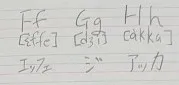 Ff Gg Hh
[ɛffe] [dʒi] [akka]
エッフェ ジ アッカ